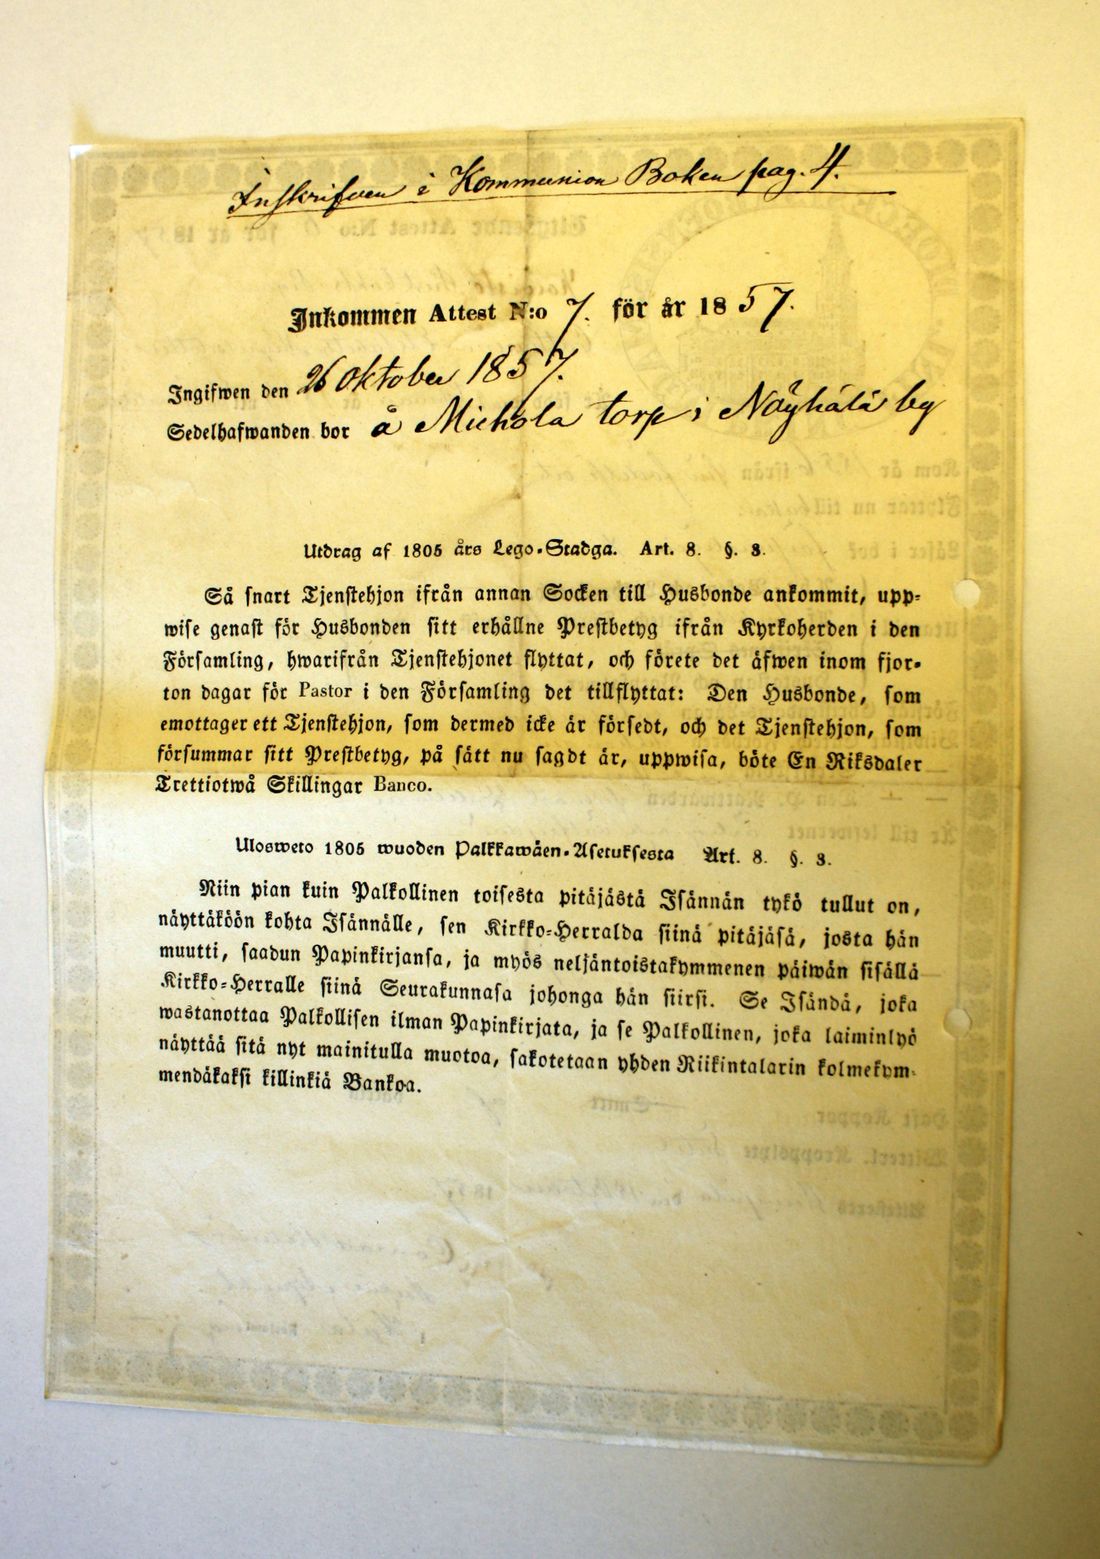 Inskrifven i Kommunion Boken pag. 4.
Inkommen Attest N:o 7. för år 1857.
Ingifwen den 26 Oktober 1857.
Sedelhafwanden bor å Michola torp i Näyhälä by
Utdrag af 1805 års Lego-Stadga. Art. 8. §. 3.
Så snart Tjenstehjon ifrån annan Socken till Husbonde ankommit, upp-
wise genast för Husbonden sitt erhållne Prestbetyg ifrån Kyrkoherden i den
Församling, hwarifrån Tjenstehjonet flyttat, och förete det äfwen inom fjor-
ton dagar för Pastor i den Församling det tillflyttat: Den Husbonde, som
emottager ett Tjenstehjon, som dermed icke är försedt, och det Tjenstehjon, som
försummar sitt Prestbetyg, på sätt nu sagdt är, uppwisa, böte En Riksdaler
Trettiotwå Skillingar Banco.
Ulosweto 1805 wuoden Palkkawäen-Asetuksesta Art. 8. §. 3.
Niin pian kuin Palkollinen toisesta pitäjästä Isännän tykö tullut on,
näyttäköön kohta Isännälle, sen Kirkko-Herralda siinä pitäjäsä, josta hän
muutti, saadun Papinkirjansa, ja myös neljäntoistakymmenen päiwän sisällä
Kirkko-Herralle siinä Seurakunnasa johonga hän siirsi. Se Isändä, joka
wastanottaa Palkollisen ilman Papinkirjata, ja se Palkollinen, joka laiminlyö
näyttää sitä nyt mainitulla muotoa, sakotetaan yhden Riikintalarin kolmekym-
mendäkaksi killinkiä Bankoa.